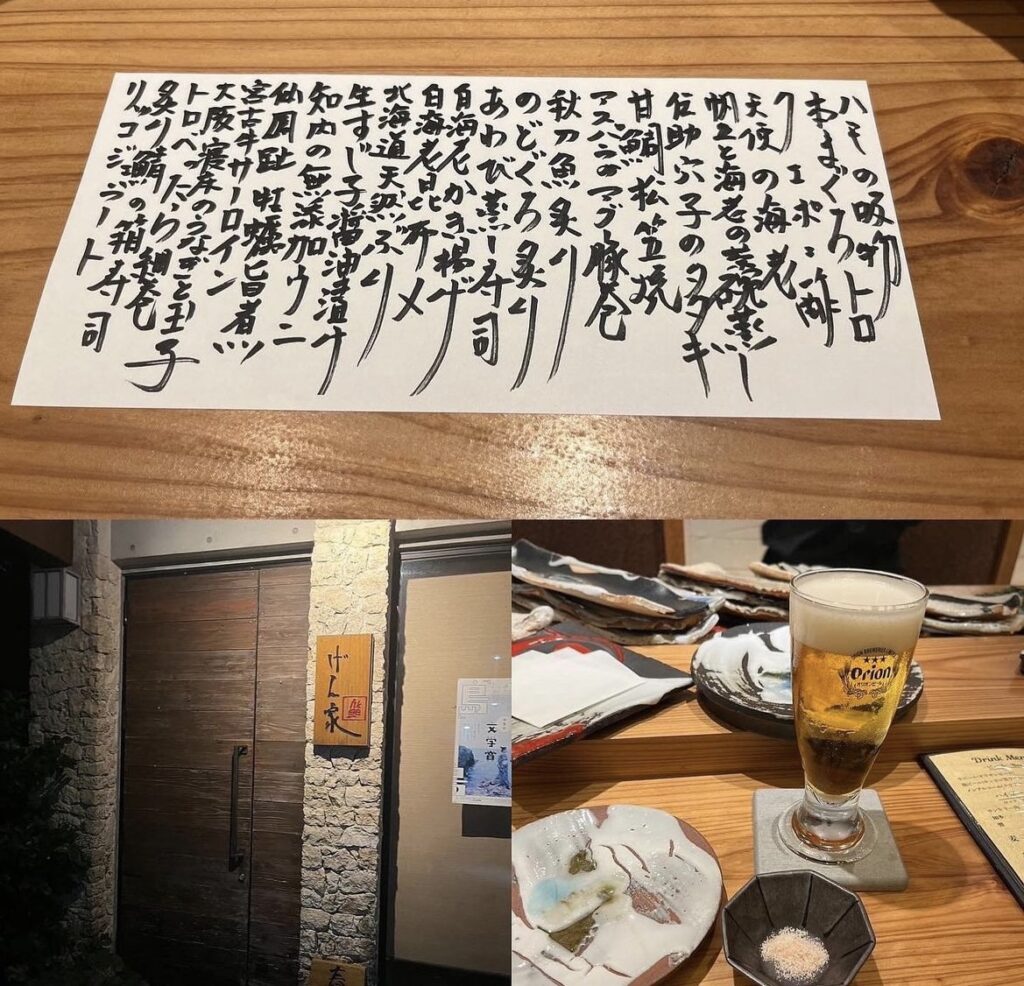 ハモの吸物
本まぐろトロ
クエポン酢
天使の海老
帆立と海老の茶碗蒸し
伝助穴子のタタキ
甘鯛松笠焼
アスパラのアグー豚巻
秋刀魚炙り
のどぐろ炙り
あわび蒸し寿司
白海老かき揚げ
白海老昆布〆
北海道天然ぶり
生すじ子醤油漬け
知内の無添加ウニ
仙鳳趾 牡蠣旨煮
宮古牛サーロイン
大阪寝床のうなぎと玉子
トロ、べったら細巻
炙り鯖の箱寿司
リッコジェラート
げん家
島
Orion
オリオンビール
Drink Me